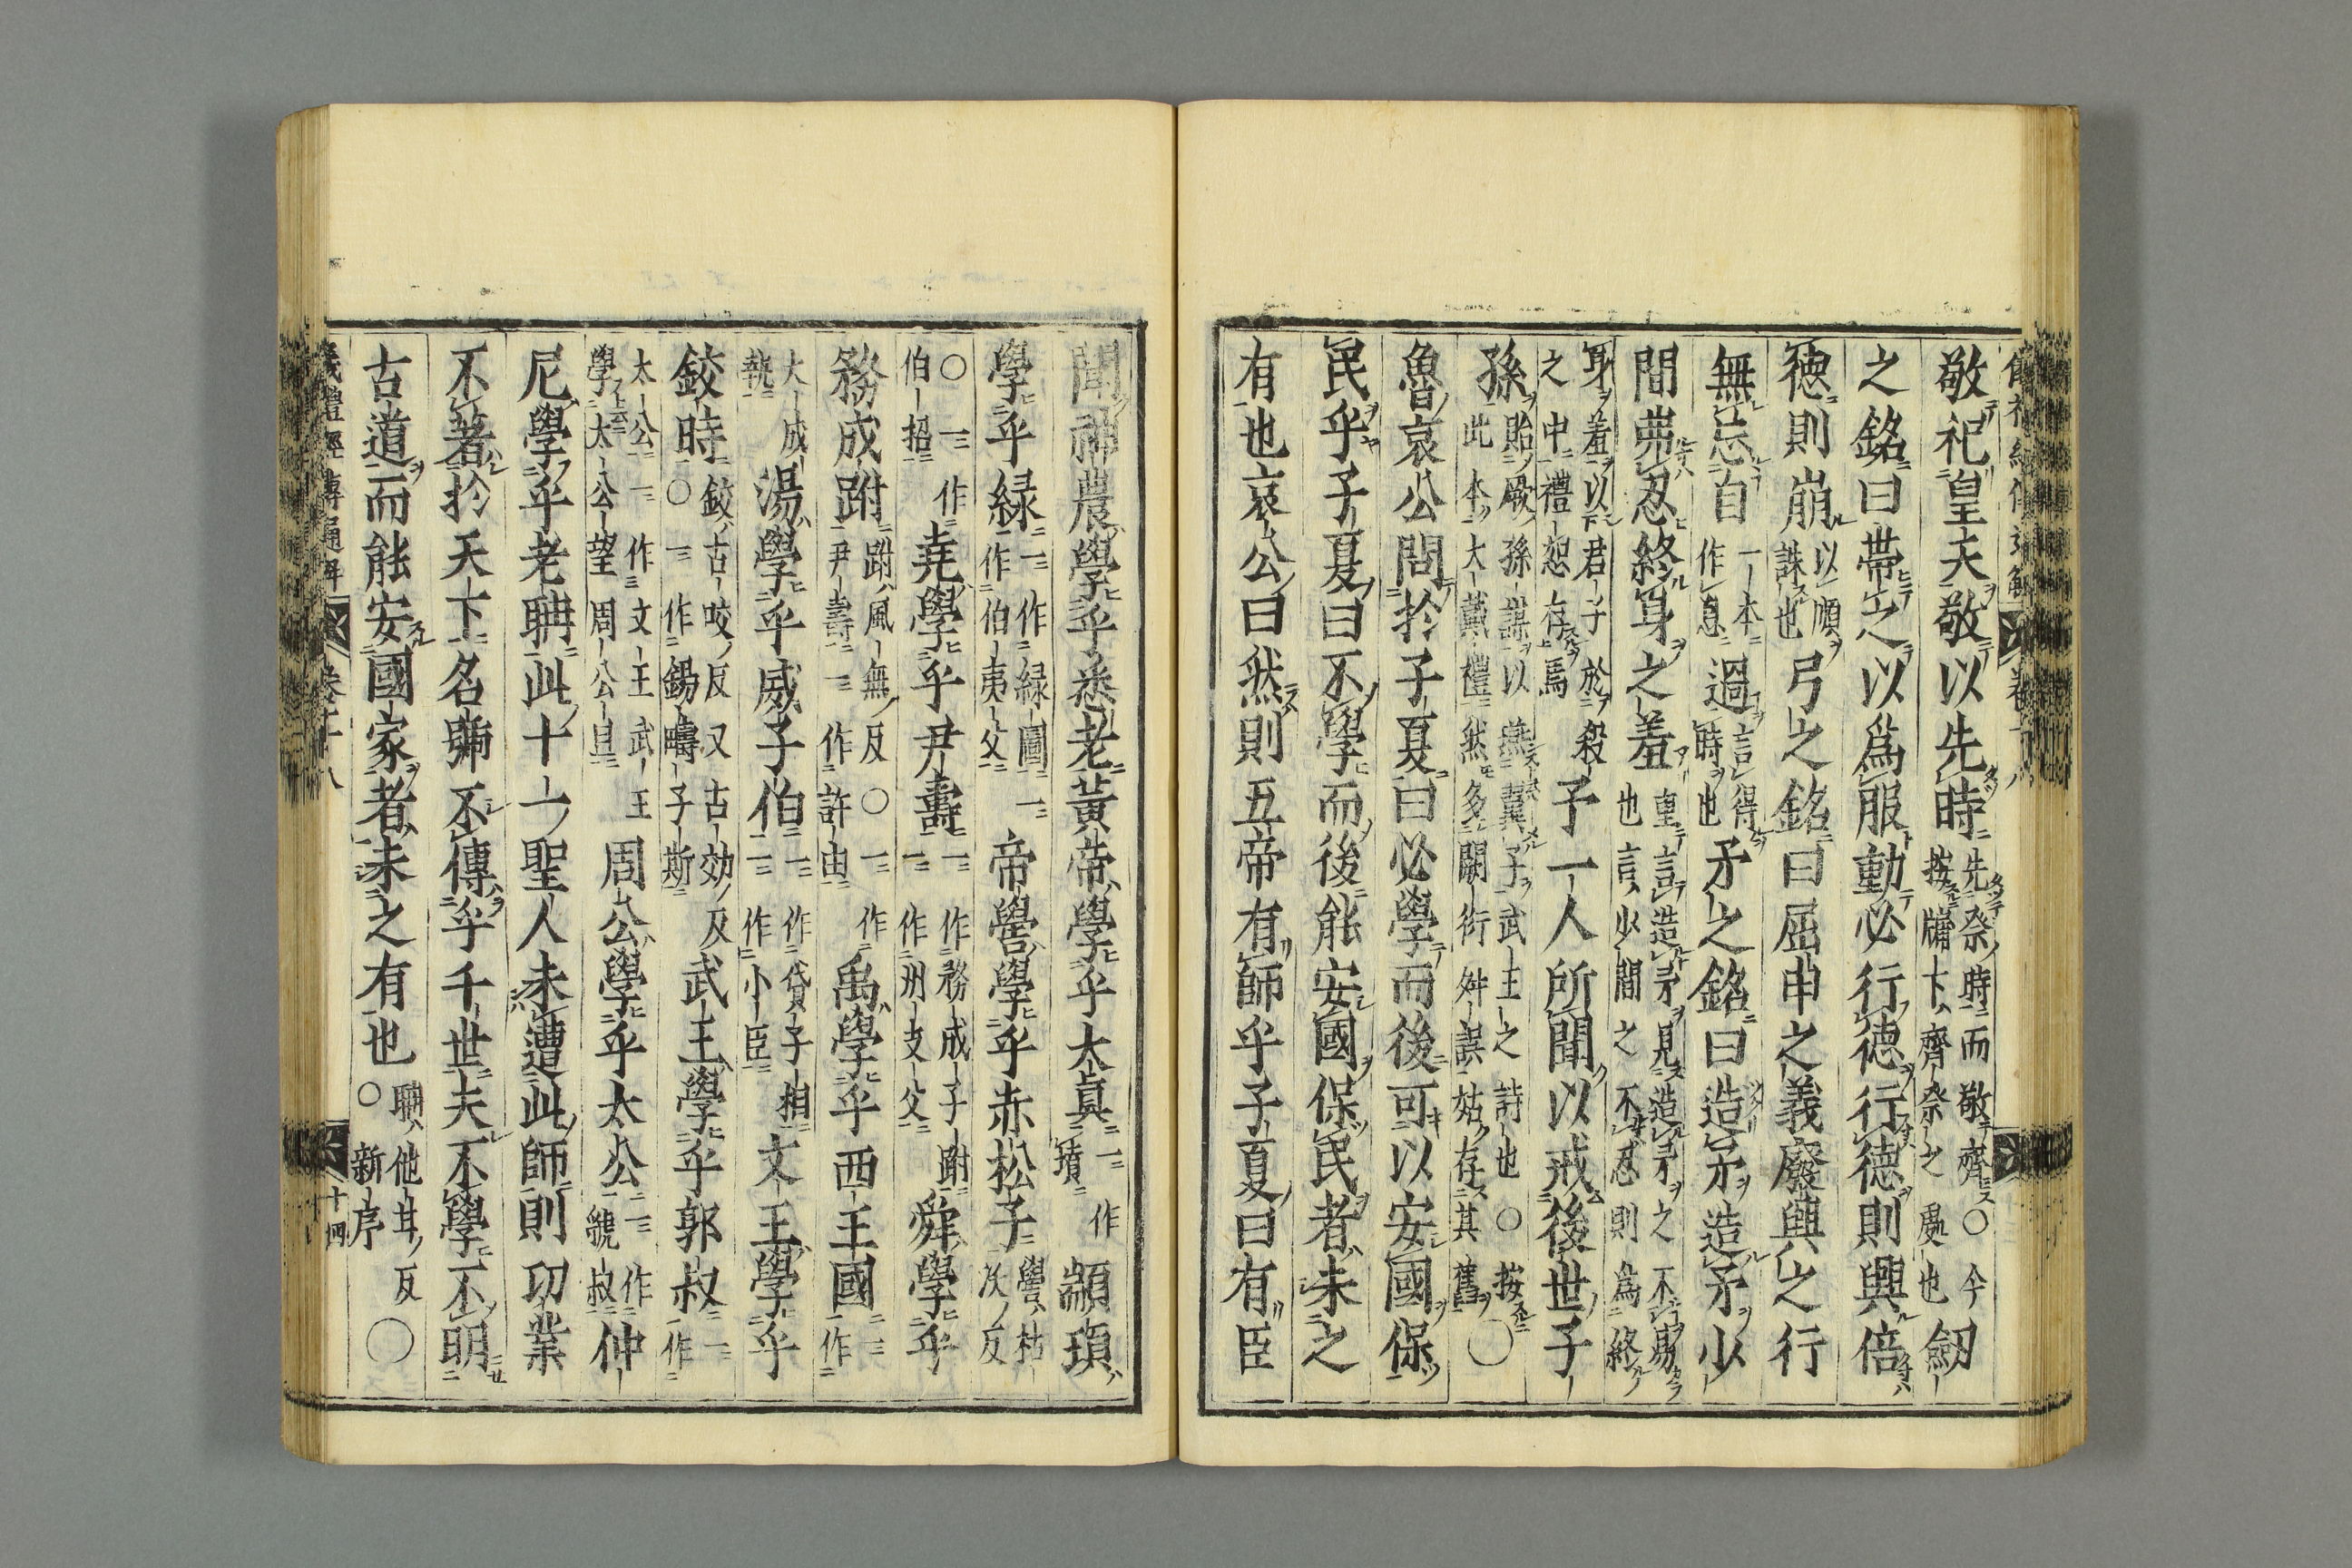 敬祀皇天敬以先時先祭時而敬齊○今按牖下齊祭之處也劒
之銘曰帶之以爲服動必行德行德則興倍
德則崩以順誅也弓之銘曰屈申之義廢興之行
無忘自一本作息過言得時也矛之銘曰造矛造矛少
間弗忍終身之羞重言造矛見造矛之不易也言少間之不忍則爲終
身羞以君子於殺之中禮恕存焉予一人所聞以戒後世子
孫貽厥孫謀以燕翼子武王之詩也○按此本大戴禮然多闕衍舛誤姑存其舊○
魯哀公問於子夏曰必學而後可以安國保
民乎子夏曰不學而後能安國保民者未之
有也哀公曰然則五帝有師乎子夏曰有臣
聞神農學乎悉老黃帝學乎太真一作墳顓頊
學乎緑一作緑圖一作伯夷父帝嚳學乎赤松子嚳枯沃反
○一作伯招堯學乎尹壽一作務成子跗一作州支父舜學乎
務成跗跗風無反○一作尹壽一作許由禹學乎西王國一作
大成執湯學乎威子伯一作貸子相一作小臣文王學乎
鉸時鉸古咬反又古効反○一作錫疇子斯武王學乎郭叔一作
太公一作文王武王學太公望周公旦周公學乎太公一作虢叔仲
尼學乎老聃此十一聖人未遭此師則功業
不著於天下名號不傳乎千世夫不學不明
古道而能安國家者未之有也聃他甘反○新序○
儀禮經傳通解 卷十八 十四